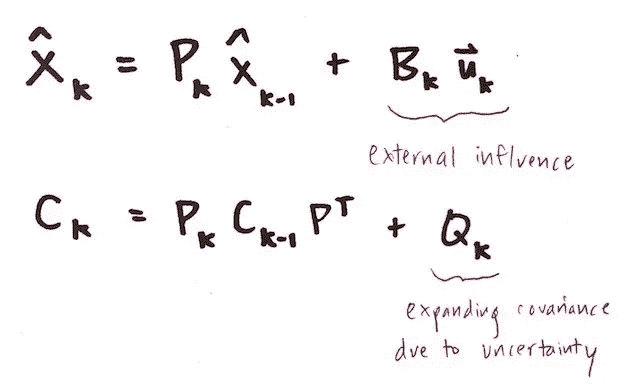 x̂ₖ = Pₖ x̂ₖ₋₁ + Bₖ u⃗ₖ
external influence
Cₖ = Pₖ Cₖ₋₁ Pᵀ + Qₖ
expanding covariance
due to uncertainty